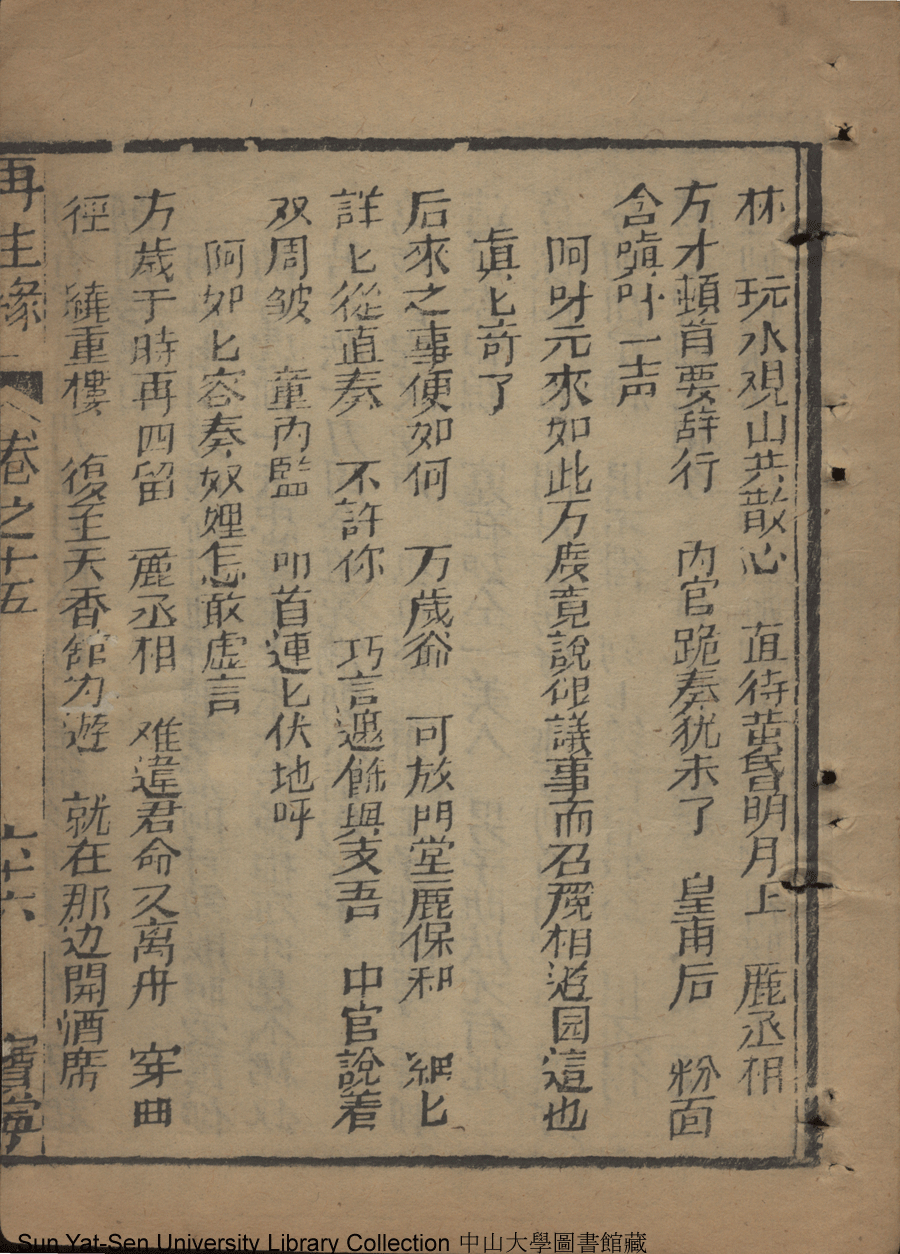 林　玩水观山共散心　直待黄昏明月上　鹿丞相
方才頓首要辞行　内官跪奏犹未了　皇甫后　粉面
含嗔叫一声
阿吓元來如此万庋竟說候議事而召鹿相遊园這也
真匕竒了
后來之事便如何　万歲爺　可放門堂鹿保和　細匕
詳匕從直奏　不許你　巧言遮餙與支吾　中官說着
双周皱　童内監　叩首連匕伏地呼
阿如匕容奏奴婢怎敢虚言
万歲于時再四留　鹿丞相　难違君命久离舟　穿曲
徑　繞重樓　復至天香館内遊　就在那边開酒席
再生緣　卷之十五　七十六　寳寧
Sun Yat-Sen University Library Collection 中山大學圖書館藏